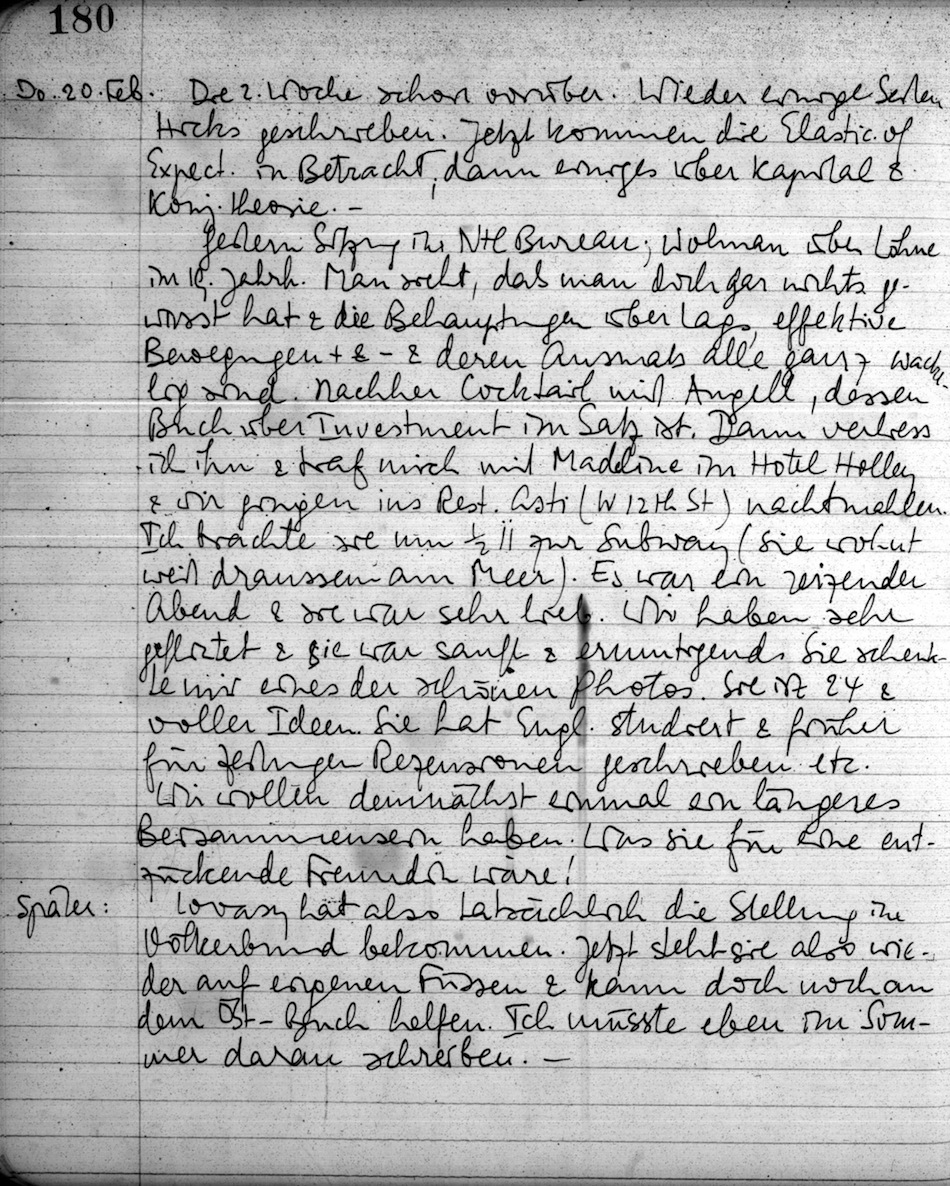 180
Do. 20. Feb. Die 2. Woche schon vorüber. Wieder einige Seiten
Hicks geschrieben. Jetzt kommen die Elastic. of
Expect. in Betracht, dann einiges über Kapital &
Konj. theorie. –
Gestern Sitzung im Ntl Bureau; Wolman über Löhne
im 19. Jahrh. Man sieht, dass man doch gar nichts ge-
wusst hat & die Behauptungen über Lags, effektive
Bewegungen + & - & deren Ausmass alle ganz wack-
lig sind. Nachher Cocktail mit Angell, dessen
Buch über Investment im Satz ist. Dann verliess
ich ihn & traf mich mit Madeline im Hotel Holley
& wir gingen ins Rest. Asti (W 12th St) nachtmahlen.
Ich brachte sie um ½ 11 zur Subway (sie wohnt
weit draussen am Meer). Es war ein reizender
Abend & sie war sehr lieb. Wir haben sehr
geflirtet & sie war sanft & ermutigend. Sie schenk-
te mir eines der schönen Photos. Sie ist 24 &
voller Ideen. Sie hat Engl. studiert & früher
für Zeitungen Rezensionen geschrieben etc.
Wir wollen demnächst einmal ein längeres
Beisammensein haben. Was sie für eine ent-
zückende Freundin wäre!
Später: Lovasy hat also tatsächlich die Stellung im
Völkerbund bekommen. Jetzt steht sie also wie-
der auf eigenen Füssen & kann doch noch an
dem Öst-Buch helfen. Ich müsste eben im Som-
mer daran schreiben. –